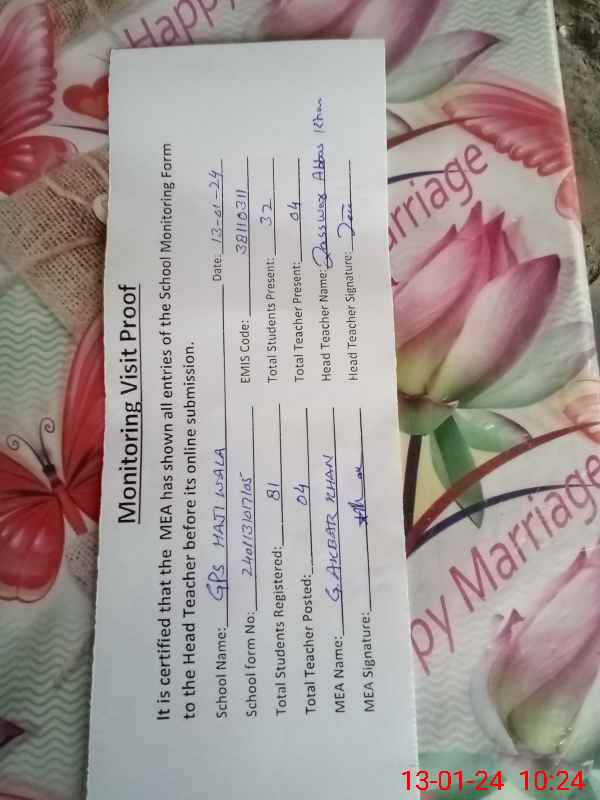 Monitoring Visit Proof
It is certified that the MEA has shown all entries of the School Monitoring Form
to the Head Teacher before its online submission.
School Name: GPS HAJI WALA Date: 13-01-24
School form No: 2401131017105 EMIS Code: 38110311
Total Students Registered: 81 Total Students Present: 32
Total Teacher Posted: 04 Total Teacher Present: 04
MEA Name: G. AKBAR KHAN Head Teacher Name: Abbas Khan
MEA Signature: Head Teacher Signature:
Happy
Marriage
Happy Marriage
13-01-24 10:24